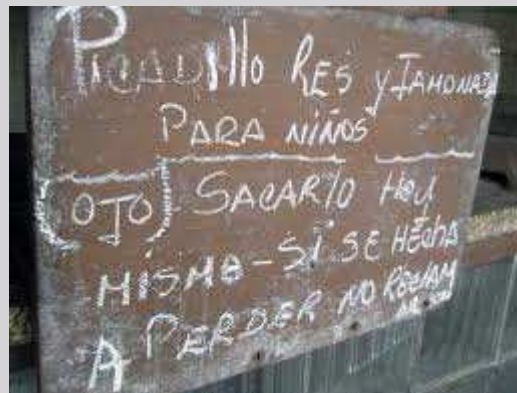 PICADIllo RES y JAMONADA
PARA NIÑOS
(OJO) SACARlO HOY
MISMO - SI SE HECHA
A PERDER NO RECLAM